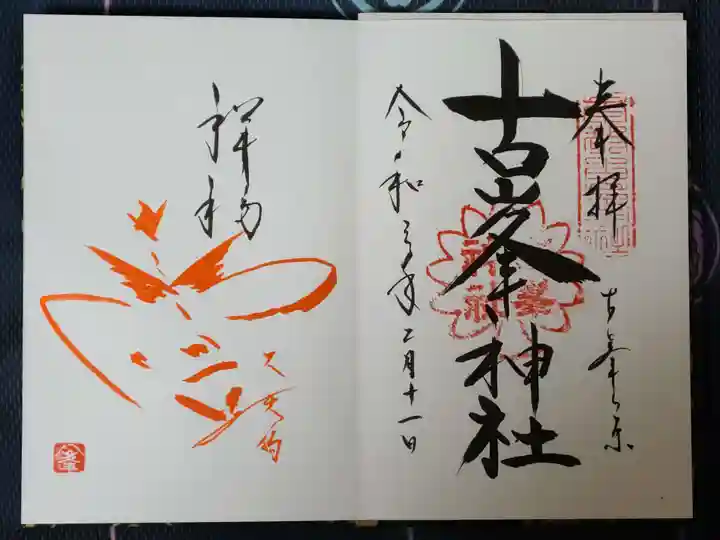 奉拝
古峯ヶ原
古峯神社
令和三年二月十一日
大天狗